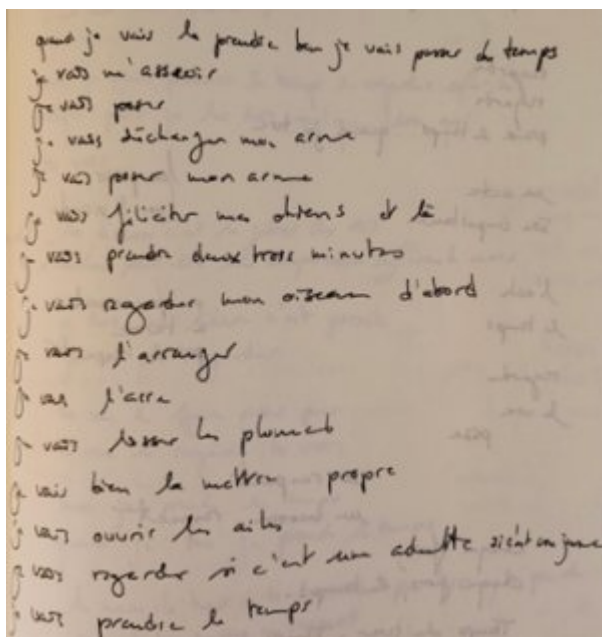 quand je vais la prendre ben je vais passer du temps
je vais m'asseoir
je vais poser
je vais décharger mon arme
je vais poser mon arme
je vais féliciter mes chiens et là
je vais prendre deux trois minutes
je vais regarder mon oiseau d'abord
je vais l'arranger
je vais
je vais lisser les plumes
je vais bien la mettre propre
je vais ouvrir les ailes
je vais regarder si c'est un adulte si c'est un jeune
je vais prendre le temps